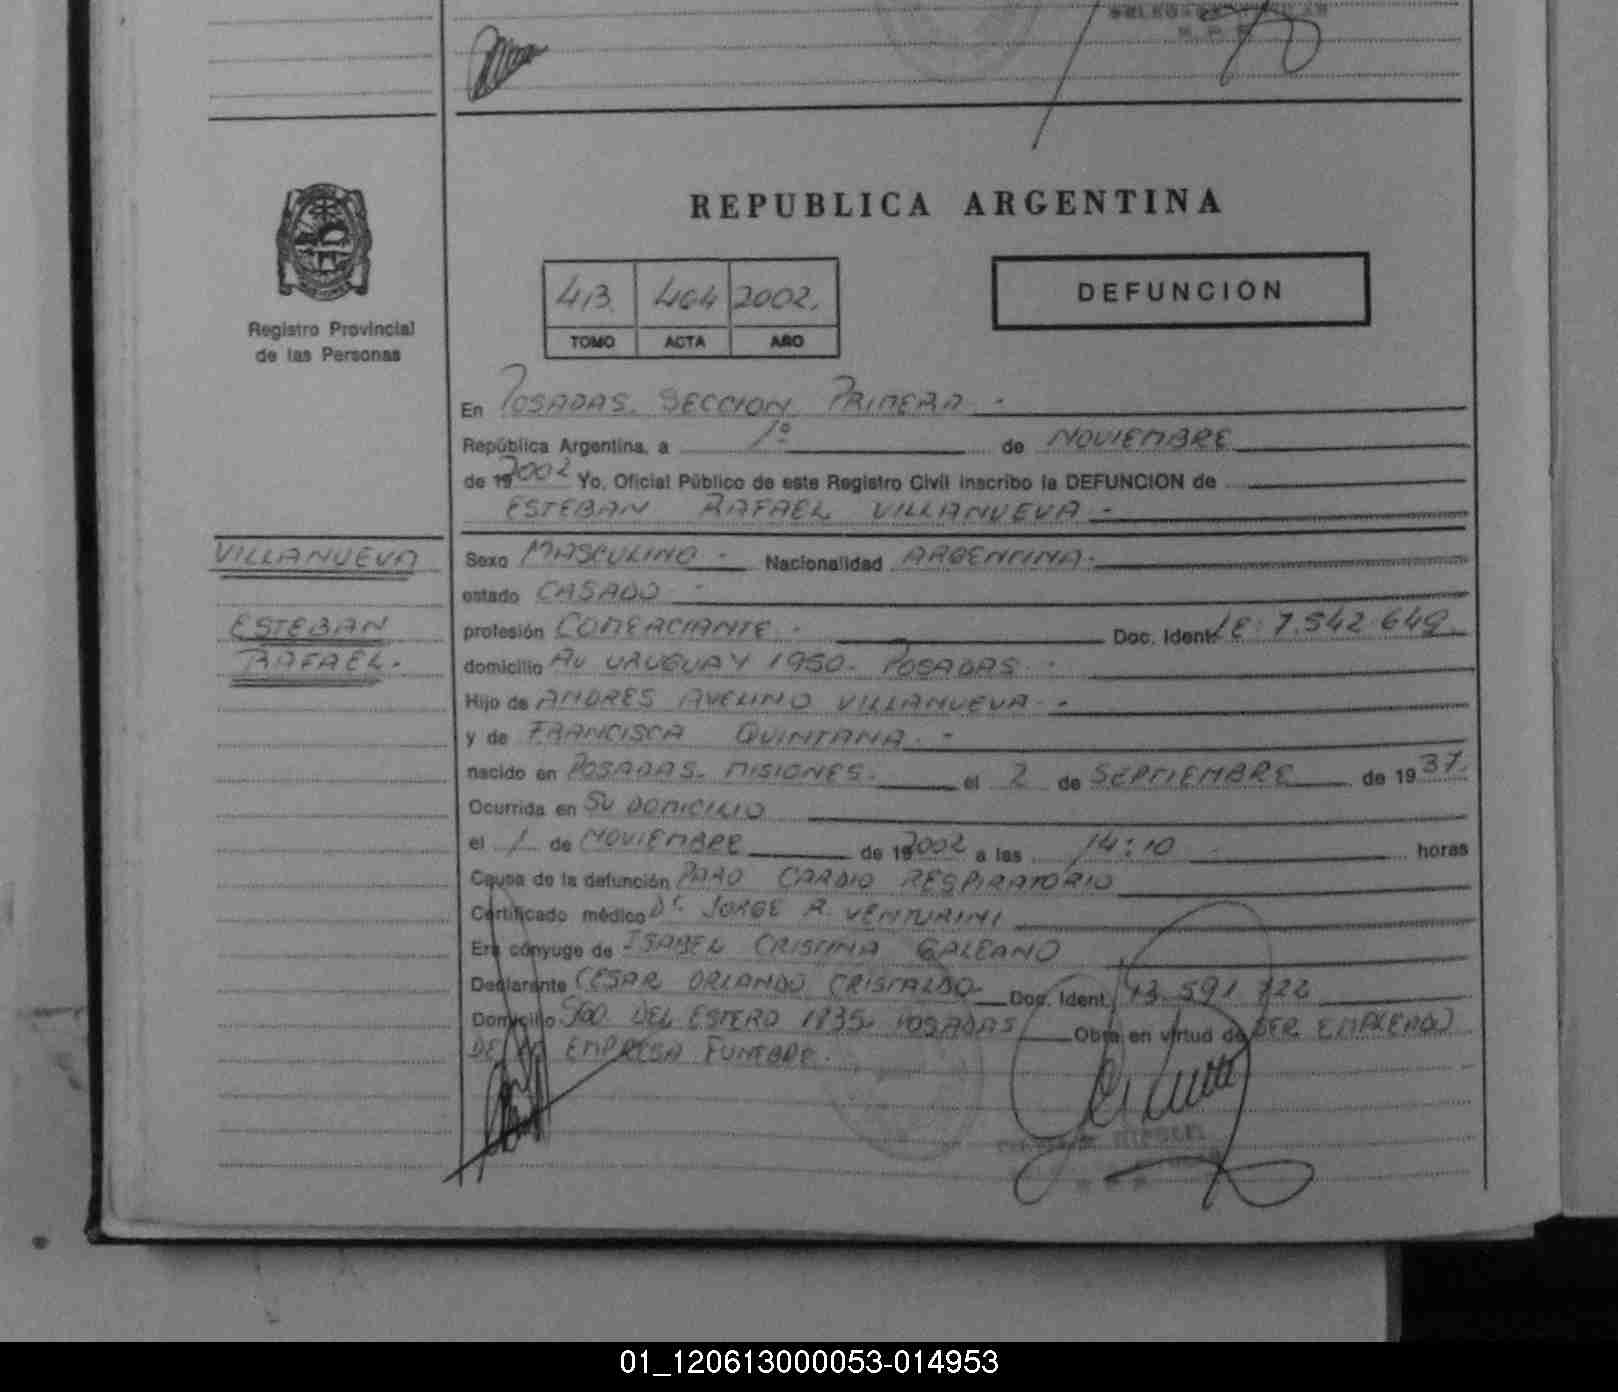 REPUBLICA ARGENTINA
413. 464 2002.
TOMO ACTA AÑO
DEFUNCION
Registro Provincial
de las Personas
En POSADAS. SECCION PRIMERA -
República Argentina, a 1º de NOVIEMBRE
de 19 2002 Yo, Oficial Público de este Registro Civil inscribo la DEFUNCION de
ESTEBAN RAFAEL VILLANUEVA -
VILLANUEVA
ESTEBAN
RAFAEL.
Sexo MASCULINO - Nacionalidad ARGENTINA -
estado CASADO -
profesión COMERCIANTE - Doc. Ident. LE: 7.542.649.
domicilio AV URUGUAY 1950. POSADAS -
Hijo de ANDRES AVELINO VILLANUEVA -
y de FRANCISCA QUINTANA. -
nacido en POSADAS. MISIONES. el 2 de SEPTIEMBRE de 1937.
Ocurrida en SU DOMICILIO
el 1 de NOVIEMBRE de 19 2002 a las 14:10 horas
Causa de la defunción PARO CARDIO RESPIRATORIO
Certificado médico Dr. JORGE R. VENTURINI
Era cónyuge de ISABEL CRISTINA GALEANO
Declarante CESAR ORLANDO CRISTALDO Doc. Ident. 13.591.722
Domicilio SGO. DEL ESTERO 1835. POSADAS Obra en virtud de SER EMPLEADO
DE EMPRESA FUNEBRE.
01_120613000053-014953